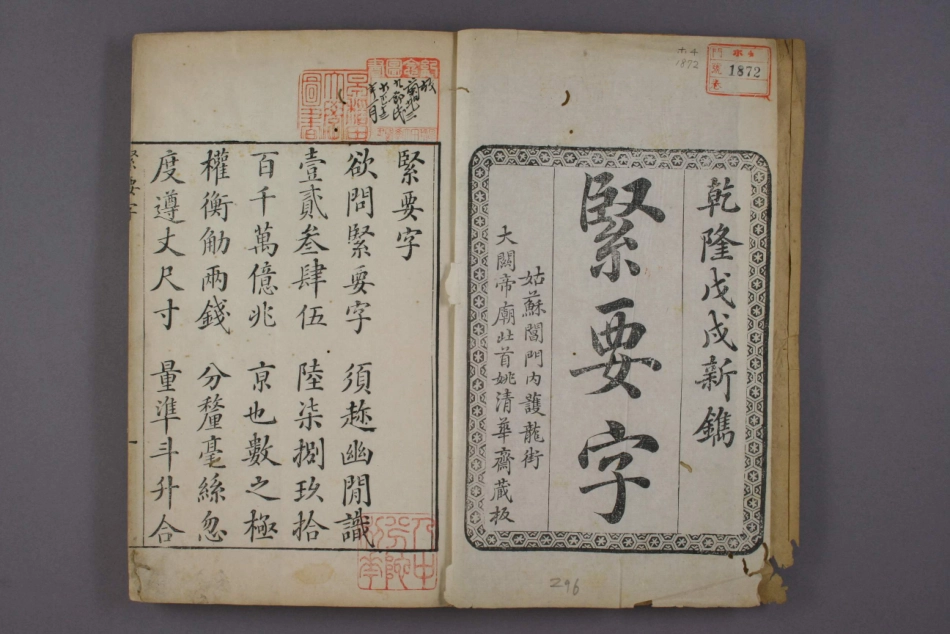 1872
1872
乾隆戊戌新鐫
緊要字
姑蘇閶門內護龍街
大關帝廟北首姚清華齋藏板
296
緊要字
欲問緊要字 須趂幽閒識
壹貳叁肆伍 陸柒捌玖拾
百千萬億兆 京也數之極
權衡觔兩錢 分釐毫絲忽
度遵丈尺寸 量準斗升合
緊要字
一
圖書